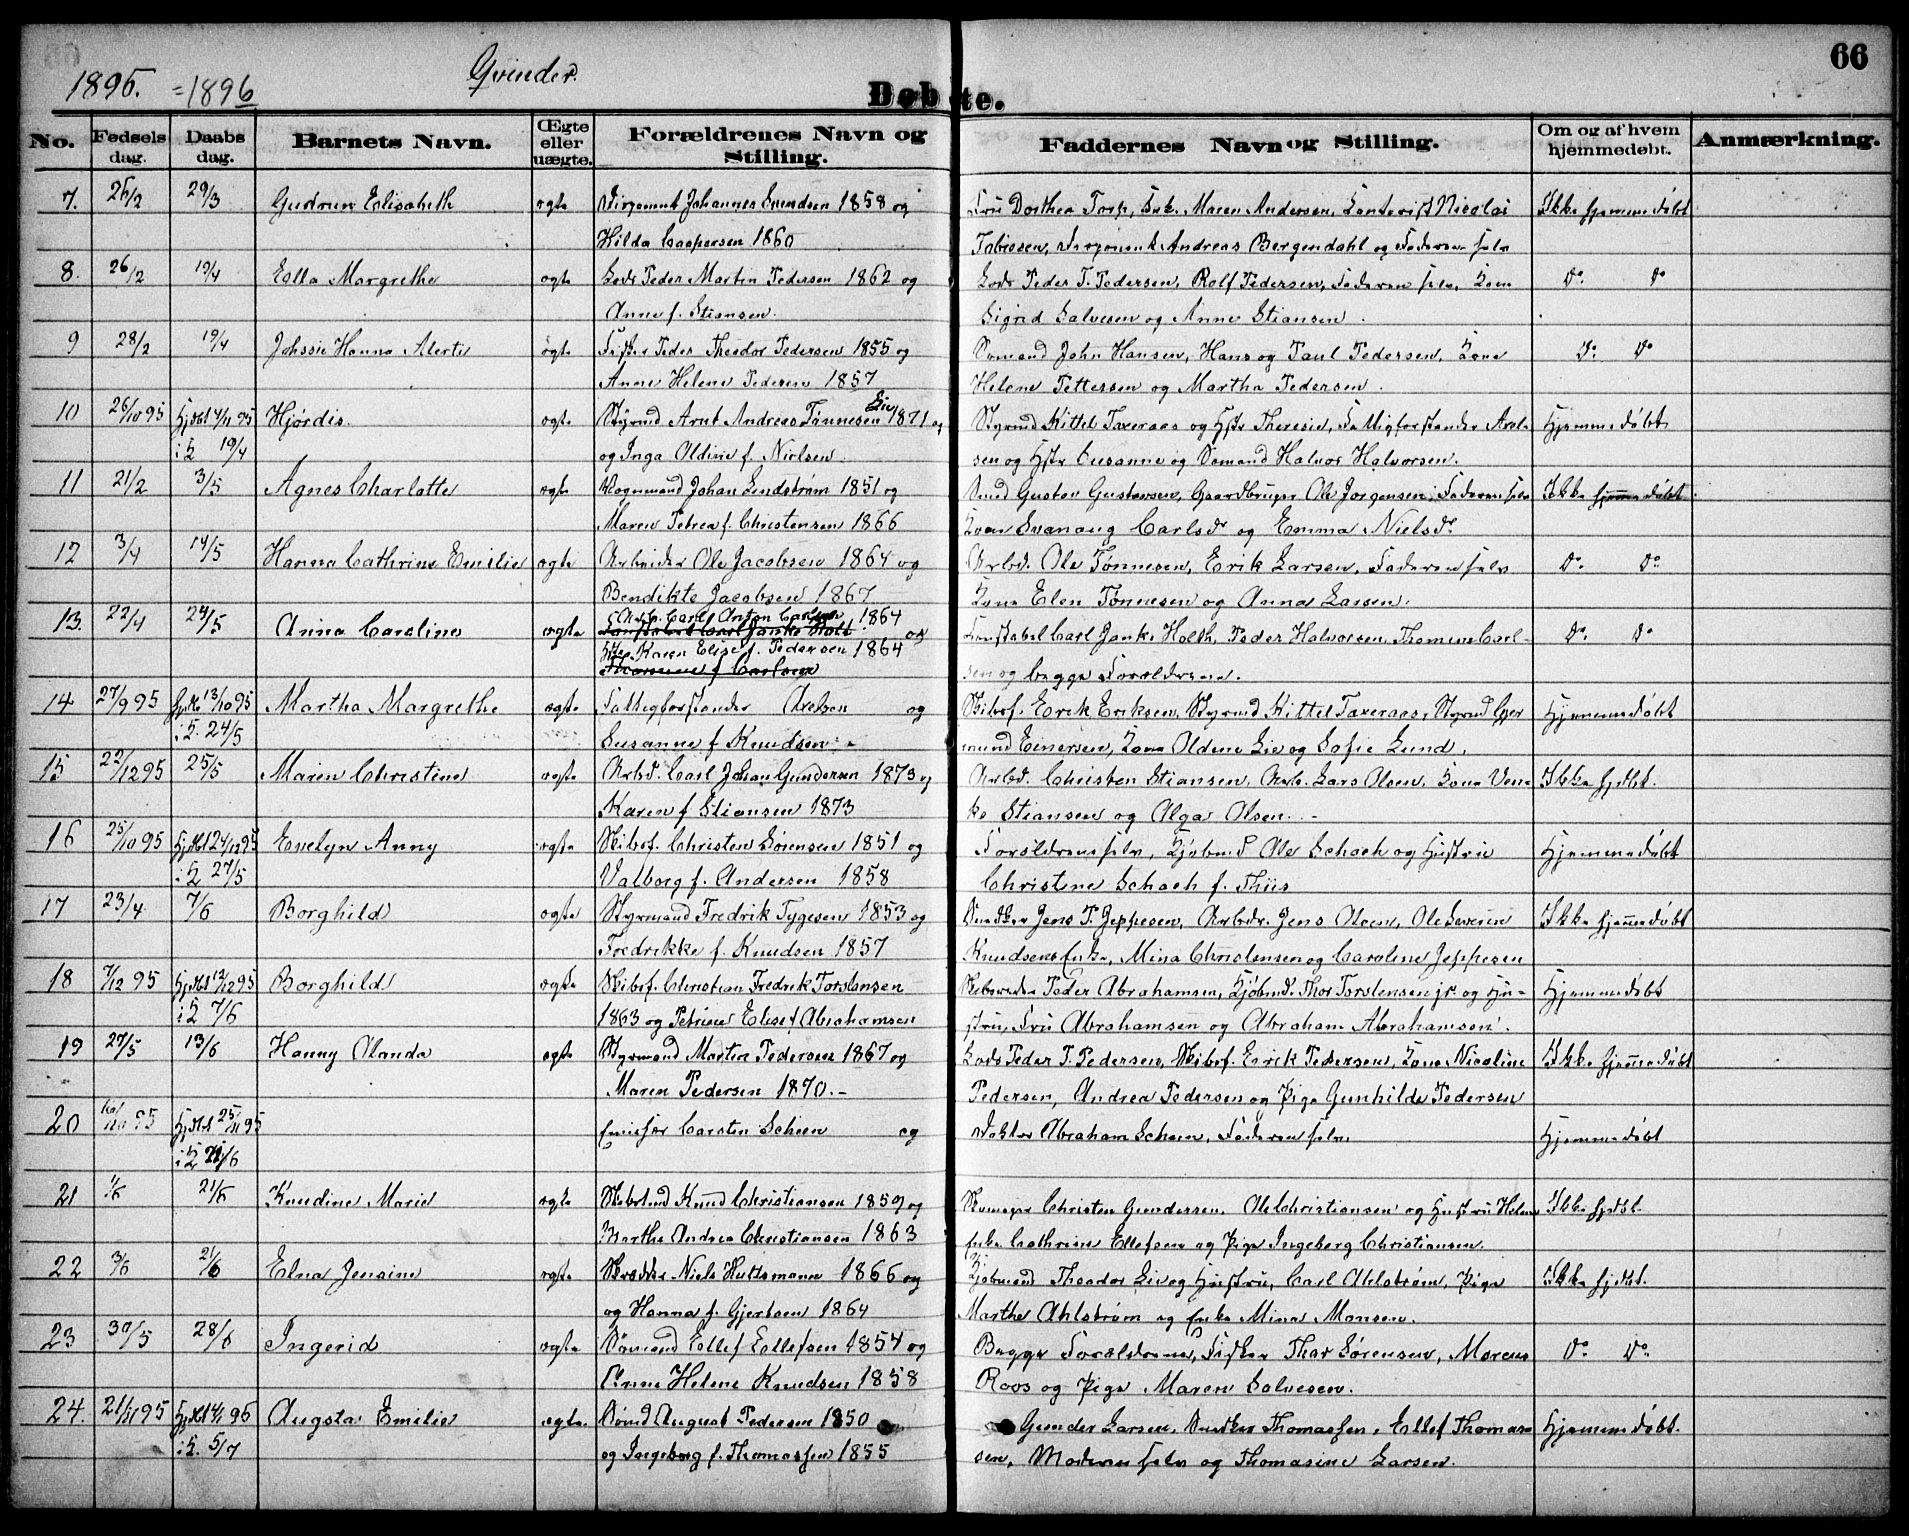 66
1895. = 1896 Qvinder.
Døbte.
No. Fødselsdag. Daabsdag. Barnets Navn. Ægte eller uægte. Forældrenes Navn og Stilling. Faddernes Navn og Stilling. Om og af hvem hjemmedøbt. Anmærkning.
7. 26/2 29/3 Gudrun Elisabeth ægte Johannes Svendsen 1858 og Fru Dorthea Torp, Maren Andersen, Nicolai Ikke hjemmedøbt
Hilda Caspersen 1860 Tobiesen, Andreas Bergendahl og Faderen selv
8. 26/2 19/4 Ella Margrethe ægte Lods Peder Martin Pedersen 1862 og Lods Peder T. Pedersen, Rolf Pedersen, Faderen selv, Kone Do Do
Anne f. Stiansen. Sigrid Salvesen og Anne Stiansen.
9 28/2 19/4 Hanna ægte Fisker Peder Theodor Pedersen 1855 og Sømand John Hansen, Hans og Paul Pedersen, Kone Do Do
Anne Helene Pedersen 1857 Helene Pettersen og Martha Pedersen.
10 26/10 95 Hjdbt 4/11 95 Hjørdis. ægte Styrmd Arnt Andreas Tønnesen Lie 1871 og Styrmd Kittel Taxeraas og Hstr Theresie, Fattigforstander Axel-
i K 19/4 og Inga Oldine f. Nielsen. sen og Hstr Susanne og Sømand Halvor Halvorsen. Hjemmedøbt
11 21/2 3/5 Agnes Charlotte ægte Vognmand Johan Lindstrøm 1851 og Gustav Gustavsen, Gaardbruger Ole Jorgensen, Faderen selv Ikke hjemmedøbt.
Maren Petrea f. Christensen 1866 Kone Svanaug Carlsdr og Emma Nielsdr
12 3/4 14/5 Hanna Cathrine Emilie ægte Arbeider Ole Jacobsen 1864 og Arbd. Ole Tønnesen, Erik Larsen, Faderen selv Do Do
Bendikte Jacobsen 1867 Kone Elen Tønnesen og Anna Larsen.
13. 22/4 24/5 Anna Caroline ægte Arb. Carl Anton Carlsen 1864 og Carl Janke Holth, Peder Halvorsen, Thomine Carl- Do Do
Hstr Karen Elise f. Pedersen 1864 sen og begge Forældrene.
Thomine f Carlsen
14 27/9 95 Hjdbt 13/10 95 Martha Margrethe ægte Fattigforstander Axelsen og Skibsf. Erik Eriksen, Styrmd Kittel Taxeraas, Styrmd Gjer- Hjemmedøbt
i K. 24/5 Susanne f Knudsen mund Einersen, Kone Oldine Lie og Sofie Lund.
15 22/12 95 25/5 Maren Christine ægte Arbd. Carl Johan Gundersen 1873 og Arbd. Christen Stiansen, Arb. Lars Olsen, Kone Ven- Ikke hjdbt.
Karen f Stiansen 1873 ke Stiansen og Olga Olsen.
16 25/10 95 Hjdbt 24/12 95 Evelyn Anny ægte Skibsf. Christen Sørensen 1851 og Forældrene selv, Kjøbmd Ole Schach og Hustru Hjemmedøbt
i K 27/5 Valborg f. Andersen 1858 Christene Schach f. Thiis
17 23/4 7/6 Borghild ægte Styrmand Fredrik Tygesen 1853 og Snedker Jens P. Jeppesen, Arbdr. Jens Olsen, Ole Severin Ikke hjemmedøbt
Fredrikke f. Knudsen 1857 Knudsens Enke, Mina Christensen og Caroline Jeppesen
18 7/12 95 Hjdbt 12/12 95 Borghild ægte Skibsf. Christian Fredrik Torstensen Peder Abrahamsen, Kjøbmd. Thor Torstensen jr. og Hu- Hjemmedøbt
i K 7/6 1863 og Petrine Elise f Abrahamsen stru, Fru Abrahamsen og Abraham Abrahamsen.
19 27/5 13/6 Hanny Olanda ægte Styrmand Martin Pedersen 1867 og Lods Peder T. Pedersen, Skibsf. Eerik Pedersen, Kone Nicoline Ikke hjemmedøbt
Maren Pedersen 1870. Pedersen, Andrea Pedersen og Pige Gunhilde Pedersen
20 95 Hjdbt 25/11 95 Carsten Scheen og Doktor Abraham Scheen, Faderen selv. Hjemmedøbt
i K 21/6
21 1/6 21/6 Knudine Marie ægte Knud Christiansen 1859 og Christen Gundersen, Ole Christiansen og Hustru Helene Ikke hjdbt.
Marthe Andrea Christiansen 1863 Enke Cathrine Ellefsen og Pige Ingeborg Christiansen.
22 3/6 21/6 Elna Jensine ægte Skrædder Niels Hultsmann 1866 og Kjøbmand Theodor Lie og Hustru, Carl Ahlstrøm, Pige Ikke hjdbt.
og Hanna f. Gjertsen 1864 Marthe Ahlstrøm og Enke Mina Monsen.
23 30/5 28/6 Ingerid ægte Sømand Ellef Ellefsen 1854 og Begge Forældrene, Fisker Thor Sørensen, Marcus Do Do
Anne Helene Knudsen 1858 Roos og Pige Maren Salvesen.
24. 21/11 95 Hjdbt 96 Augsta Emilie ægte. Sømd August Pedersen 1850 Gunder Larsen, Snedker Thomassen, Ellef Thomas- Hjemmedøbt.
i K. 5/7 og Ingeborg f. Thomassen 1855 sen, Moderen selv og Thomasine Larsen.